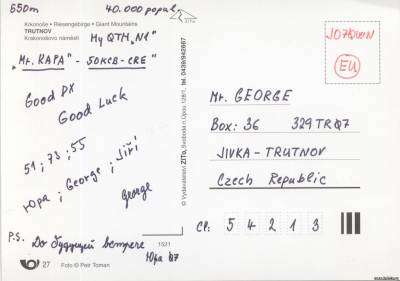 550m
40.000 popul.
Krkonoše • Riesengebirge • Giant Mountains
TRUTNOV
Krakonošovo náměstí
My QTH „N1"
„Mt. KAPA" - 50KCB-CRE"
Good DX
Good Luck
51; 73; 55
Юра; George; Jiří
George
P.S. До будущей встречи
Юра
27 Foto © Petr Toman
1521
© Vydavatelství ZITo, Svoboda n.Úpou 128/1, tel. 0439/942667
EU
Mr. GEORGE
Box: 36 329TR07
JIVKA - TRUTNOV
Czech Republic
CP: 5 4 2 1 3